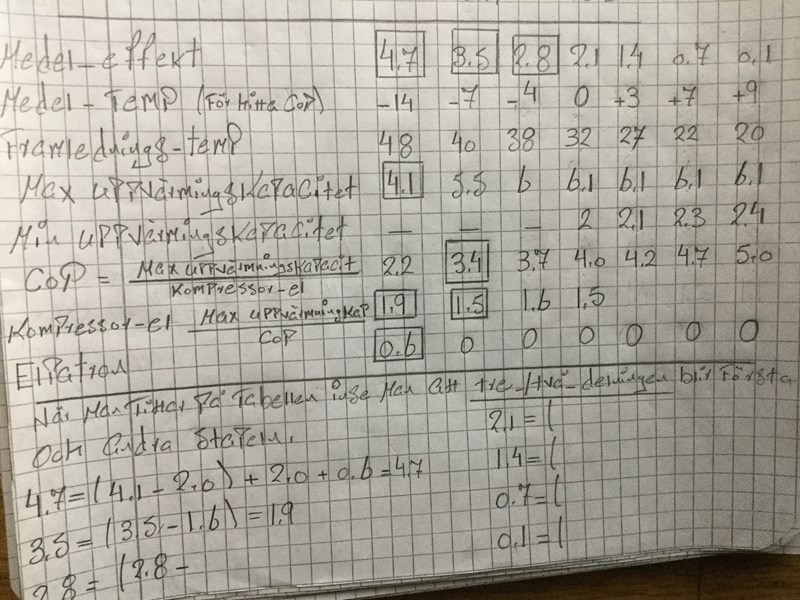 Medel-effekt 4.7 3.5 2.8 2.1 1.4 0.7 0.1
Medel-Temp (För Hitta CoP) -14 -7 -4 0 +3 +7 +9
Framlednings-temp 48 40 38 32 27 22 20
Max uppvärmingskapacitet 4.1 5.5 6 6.1 6.1 6.1 6.1
Min uppvärmingskapacitet — — — 2 2.1 2.3 2.4
CoP = Max uppvärmningskapacit / Kompressor-el 2.2 3.4 3.7 4.0 4.2 4.7 5.0
Kompressor-el Max uppvärmningkap / CoP 1.9 1.5 1.6 1.5
Elpatron 0.6 0 0 0 0 0 0
När Man Tittar På Tabellen inse Man att tre-/två-delningen blir Första
Och Andra Stapeln.
4.7 = (4.1 - 2.0) + 2.0 + 0.6 = 4.7
3.5 = (3.5 - 1.6) = 1.9
2.8 = (2.8 -
2.1 = (
1.4 = (
0.7 = (
0.1 = (